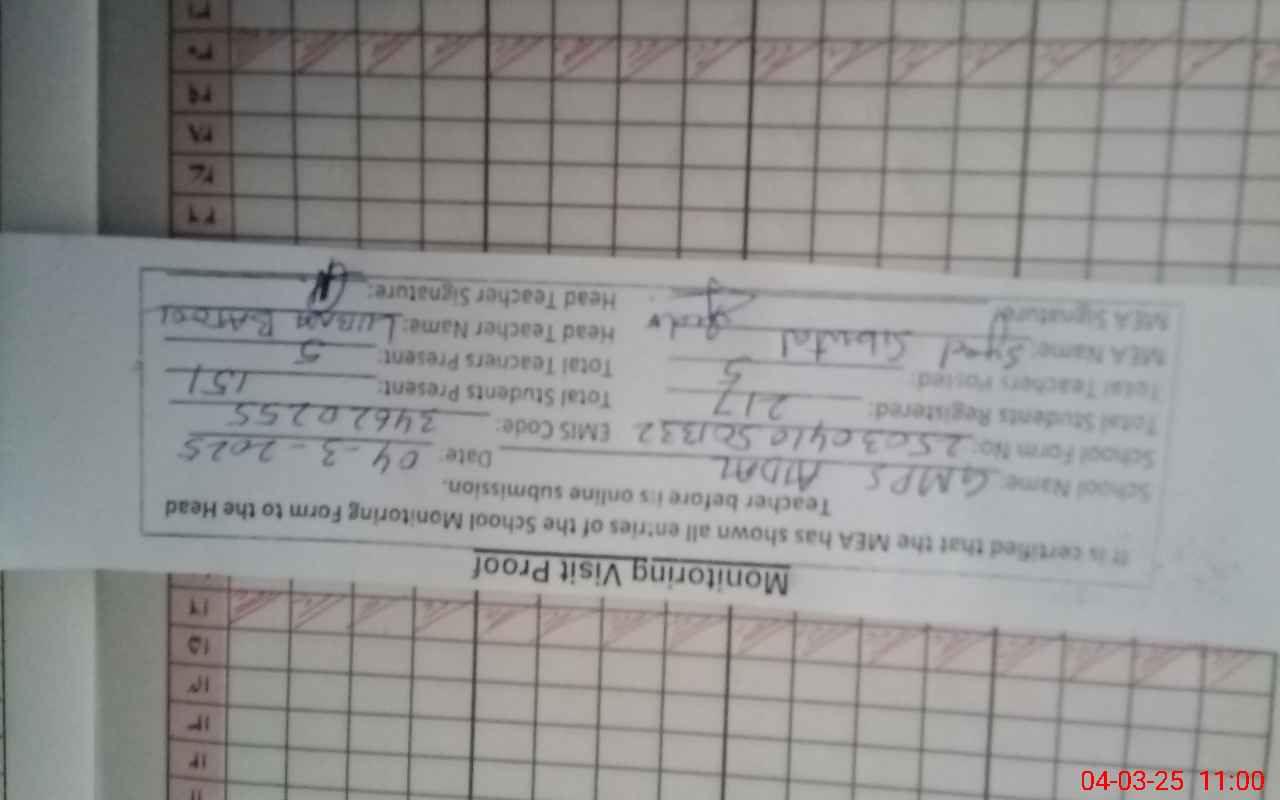 Monitoring Visit Proof
It is certified that the MEA has shown all entries of the School Monitoring Form to the Head
Teacher before its online submission.
School Name: GMPS AIDAL Date: 04-3-2025
School Form No: 25030410501332 EMIS Code: 34620255
Total Students Registered: 217 Total Students Present: 151
Total Teachers Posted: 5 Total Teachers Present: 5
MEA Name: Syed Head Teacher Name: LUBAN BATOOL
MEA Signature: Head Teacher Signature:
۱۱
۱۲
۱۳
۱۴
۱۵
۱۶
۲۶
۲۷
۲۸
۲۹
۳۰
۳۱
04-03-25 11:00